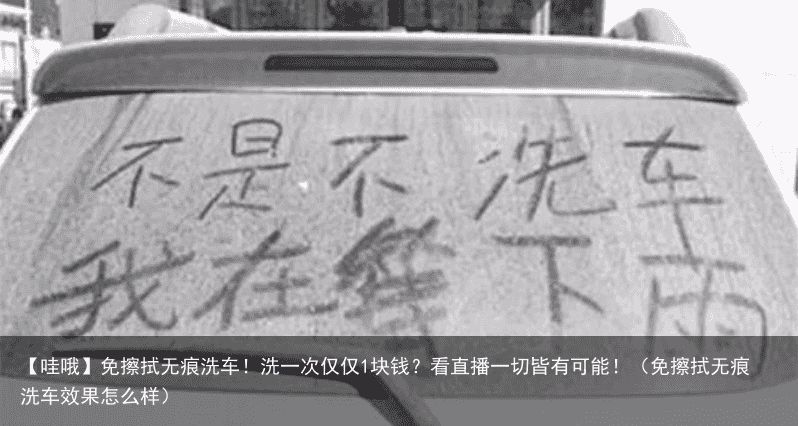 不是不洗车
我在等下雨
【哇哦】免擦拭无痕洗车！洗一次仅仅1块钱？看直播一切皆有可能！（免擦拭无痕
洗车效果怎么样）